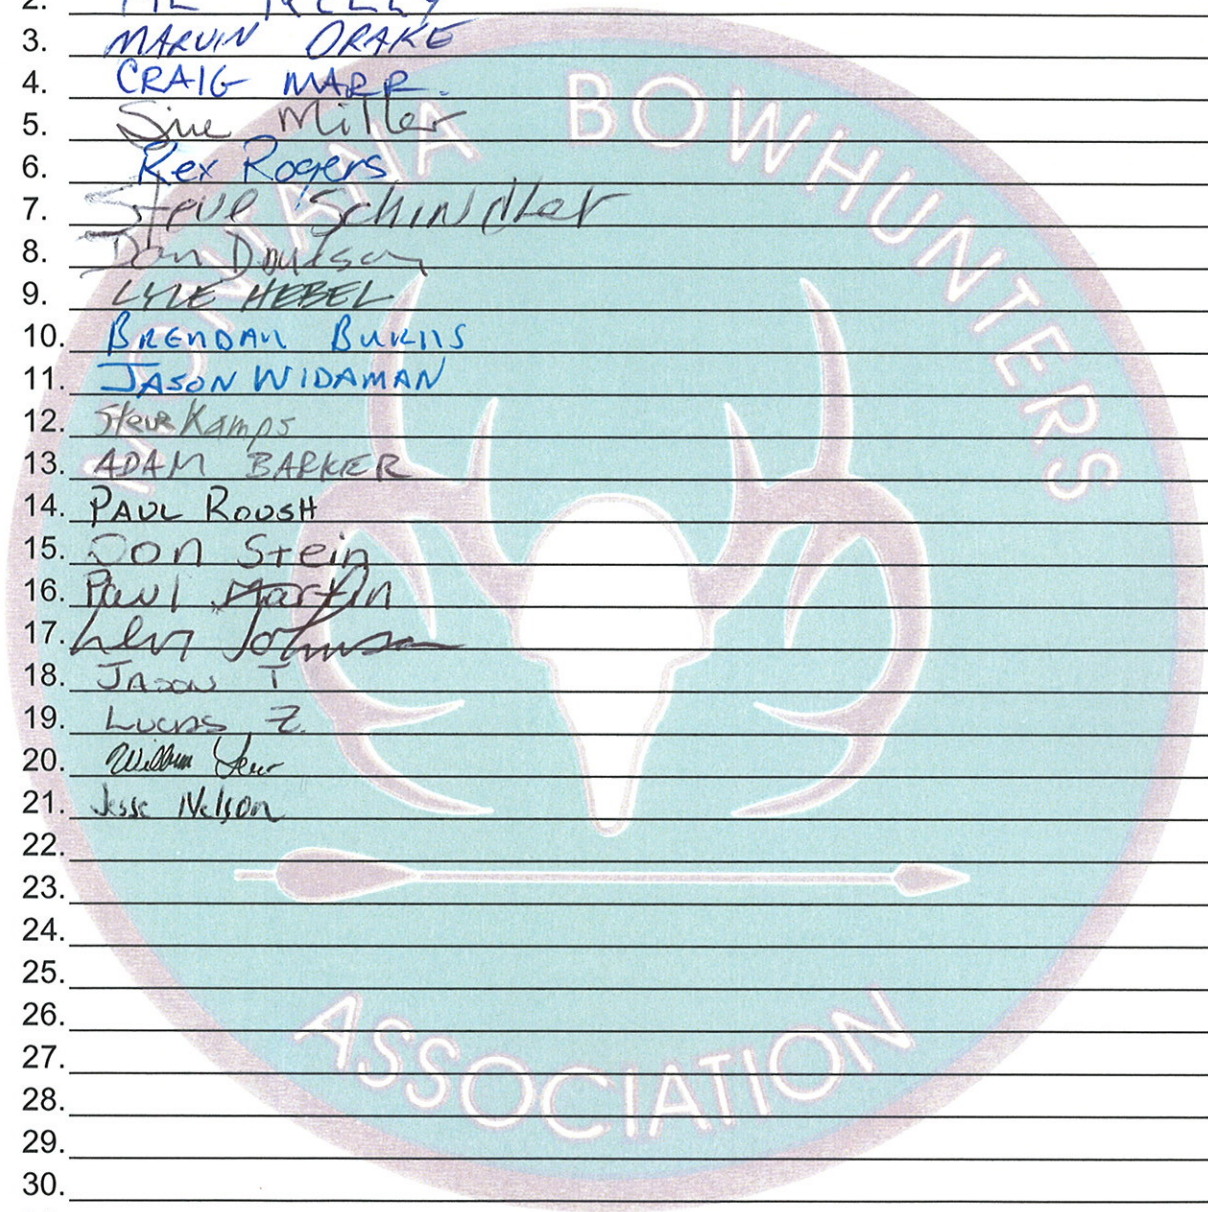 2. AL KELLY
3. MARVIN DRAKE
4. CRAIG MARR.
5. Sue Miller
6. Rex Rogers
7. Steve Schindler
8. Don Davidson
9. LYLE HEBEL
10. BRENDAN BURNS
11. JASON WIDAMAN
12. Steve Kamps
13. ADAM BARKER
14. PAUL ROUSH
15. Don Stein
16. Paul Martin
17. Levi Johnson
18. JASON T
19. LUCAS Z.
20. William
21. Jesse Nelson
22.
23.
24.
25.
26.
27.
28.
29.
30.
MONTANA BOWHUNTERS
ASSOCIATION